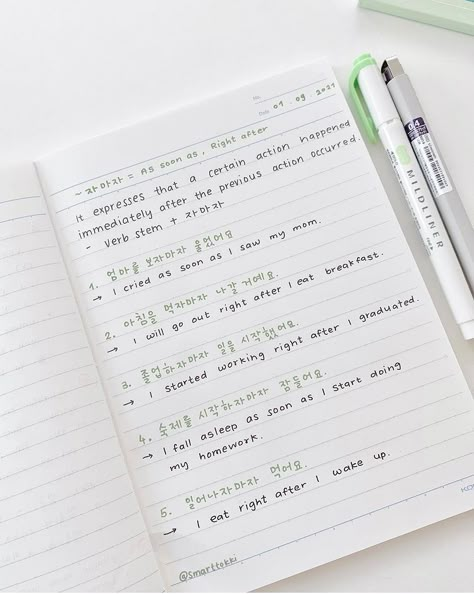 No.
Date 09 . 09 . 2021
~자마자 = As soon as, Right after
It expresses that a certain action happened
immediately after the previous action occurred.
- Verb stem + 자마자
1. 엄마를 보자마자 울었어요
→ I cried as soon as I saw my mom.
2. 아침을 먹자마자 나갈 거예요.
→ I will go out right after I eat breakfast.
3. 졸업하자마자 일을 시작했어요.
→ I started working right after I graduated.
4. 숙제를 시작하자마자 잠들어요.
→ I fall asleep as soon as I start doing
my homework.
5. 일어나자마자 먹어요.
→ I eat right after I wake up.
@smarttokki
MILDLINER
0.4